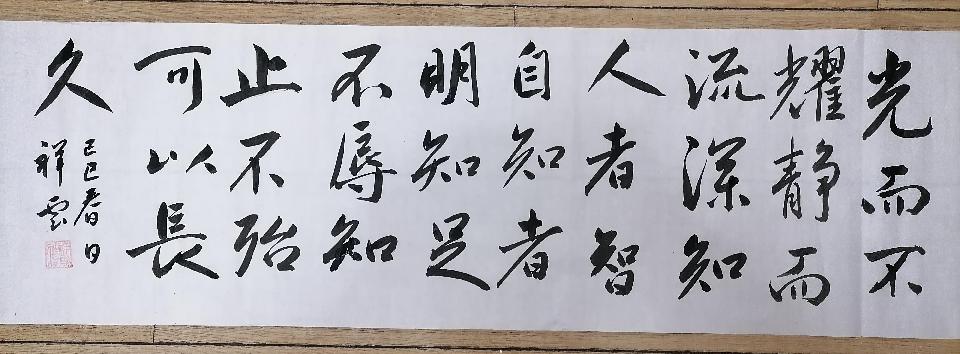 光而不
耀静而
流深知
人者智
自知者
明知足
不辱知
止不殆
可以長
久
己巳春日
祥雲